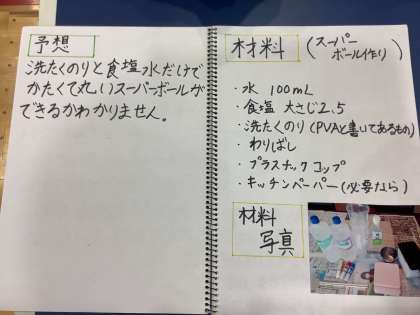 予想
洗たくのりと食塩水だけで
かたくて丸いスーパーボールが
できるかわかりません。
材料（スーパーボール作り）
・水 100mL
・食塩 大さじ2,5
・洗たくのり（PVAと書いてあるもの）
・わりばし
・プラスチックコップ
・キッチンペーパー（必要なら）
材料
写真